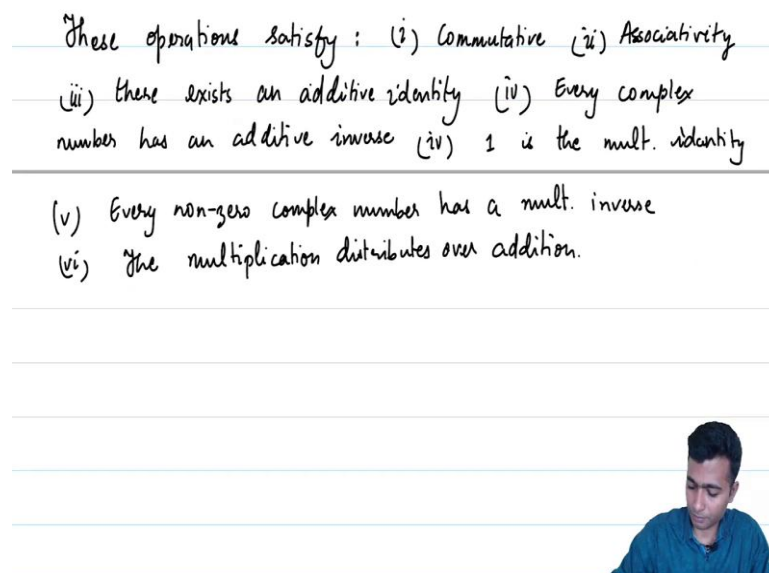 These operations satisfy : (i) Commutative (ii) Associativity
(iii) there exists an additive identity (iv) Every complex
number has an additive inverse (iv) 1 is the mult. identity
(v) Every non-zero complex number has a mult. inverse
(vi) The multiplication distributes over addition.